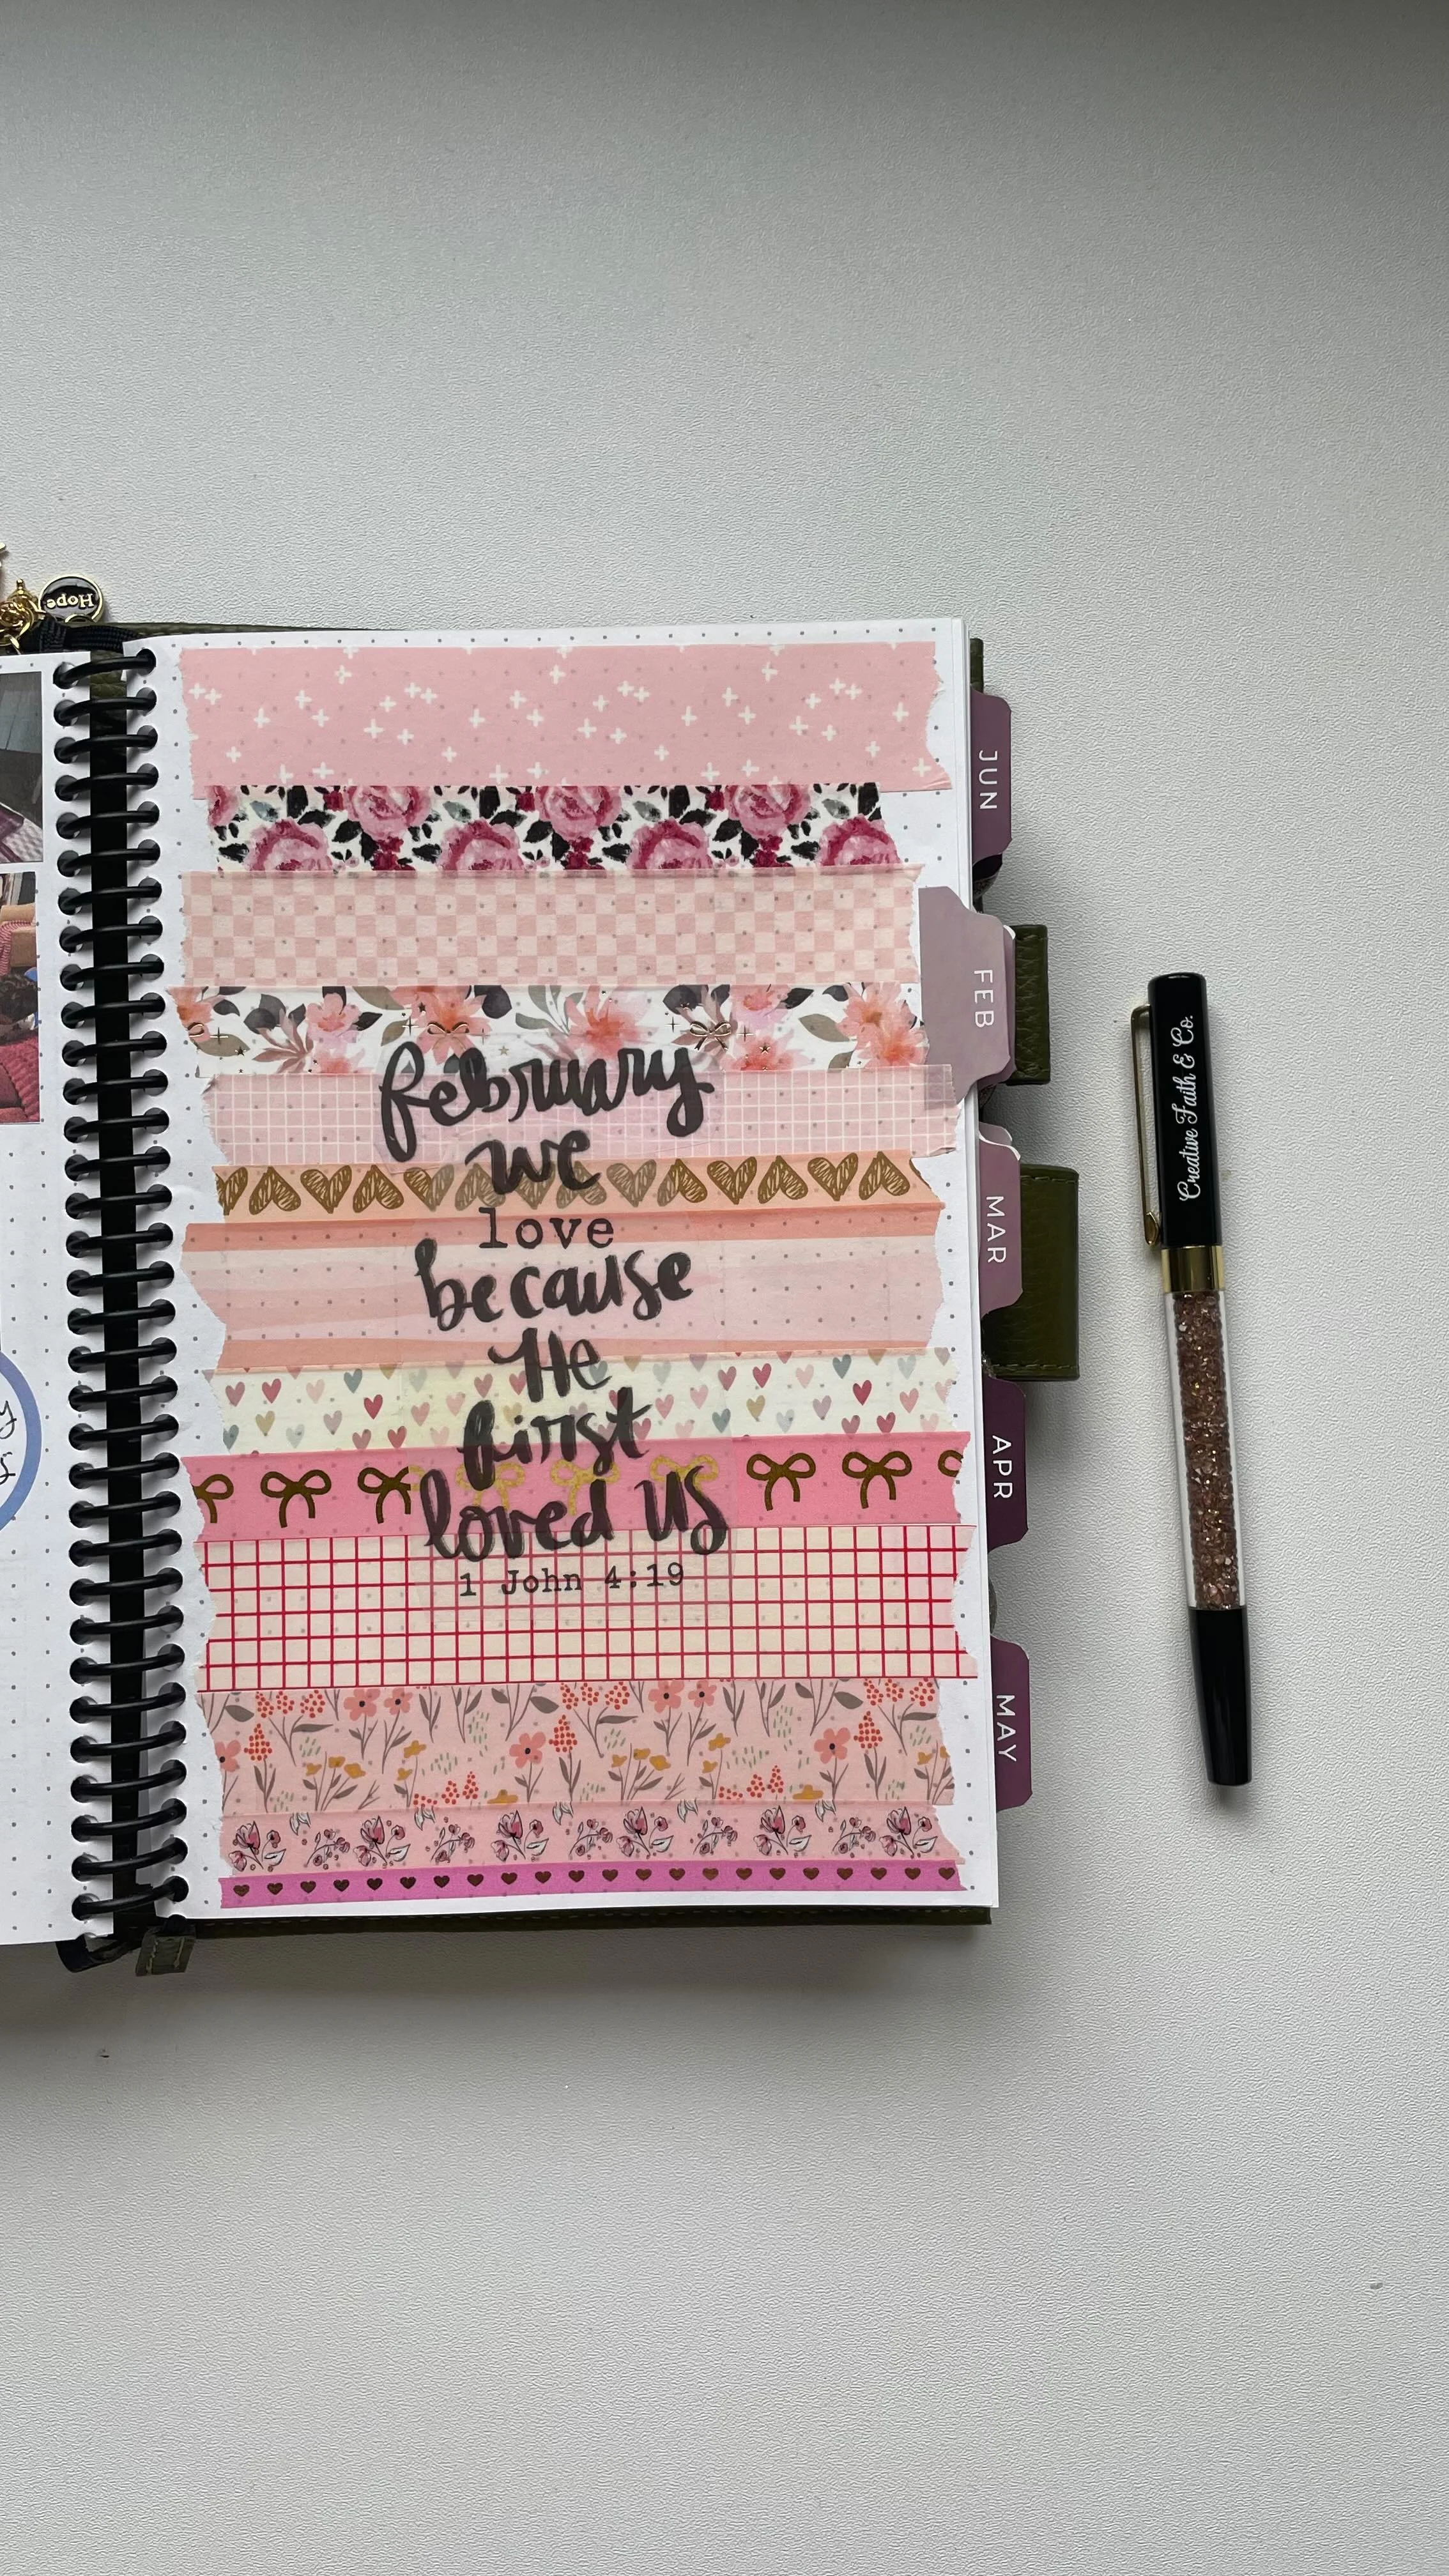 Hope
JUN
FEB
february
we
love
because
He
first
loved us
1 John 4:19
MAR
APR
MAY
Creative Faith & Co.